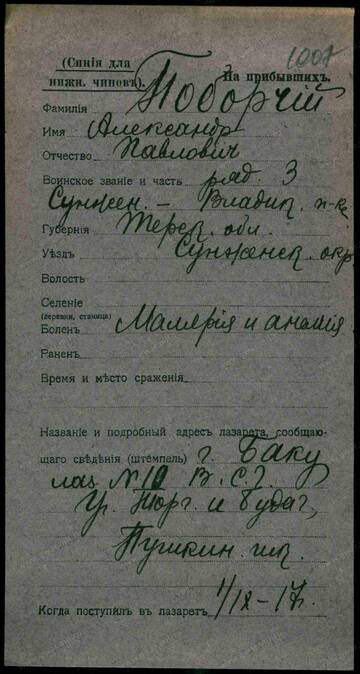 1007
(Синія для нижн. чиновъ).
На прибывшихъ.
Фамилія Поборчій
Имя Александр
Отчество Павлович
Воинское званіе и часть ряд. 3
Сунжен. - Владик. п-ка
Губернія Терск. обл.
Уѣздъ Сунженск. окр.
Волость
Селеніе
(деревня, станица)
Боленъ Малярія и анемія
Раненъ
Время и мѣсто сраженія
Названіе и подробный адресъ лазарета, сообщаю-
щаго свѣдѣнія (штемпель) г. Баку
лаз. № 10 В.С.Г.
Уг. Торг. и Будаг.,
Пушкин. шк.
Когда поступилъ въ лазаретъ 1/IX-17.